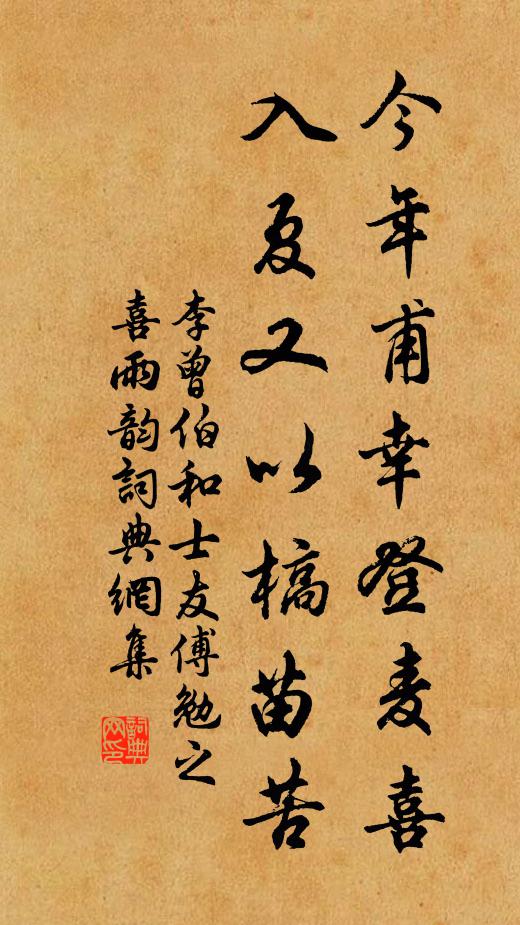 今年甫幸登麦喜
入夏又以槁苗苦
李曾伯和士友傅勉之
喜雨韵詞典網集
詞典网印